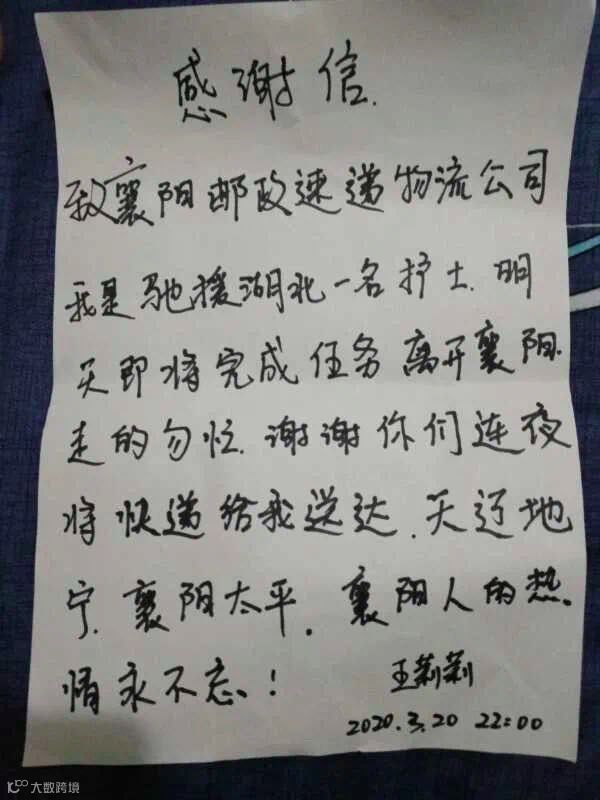 感谢信.
致襄阳邮政速递物流公司
我是驰援湖北一名护士.明
天即将完成任务离开襄阳.
走的匆忙.谢谢你们连夜
将快递给我送达.天辽地
宁.襄阳太平.襄阳人的热
情永不忘!
王莉莉
2020.3.20 22:00
大数跨境